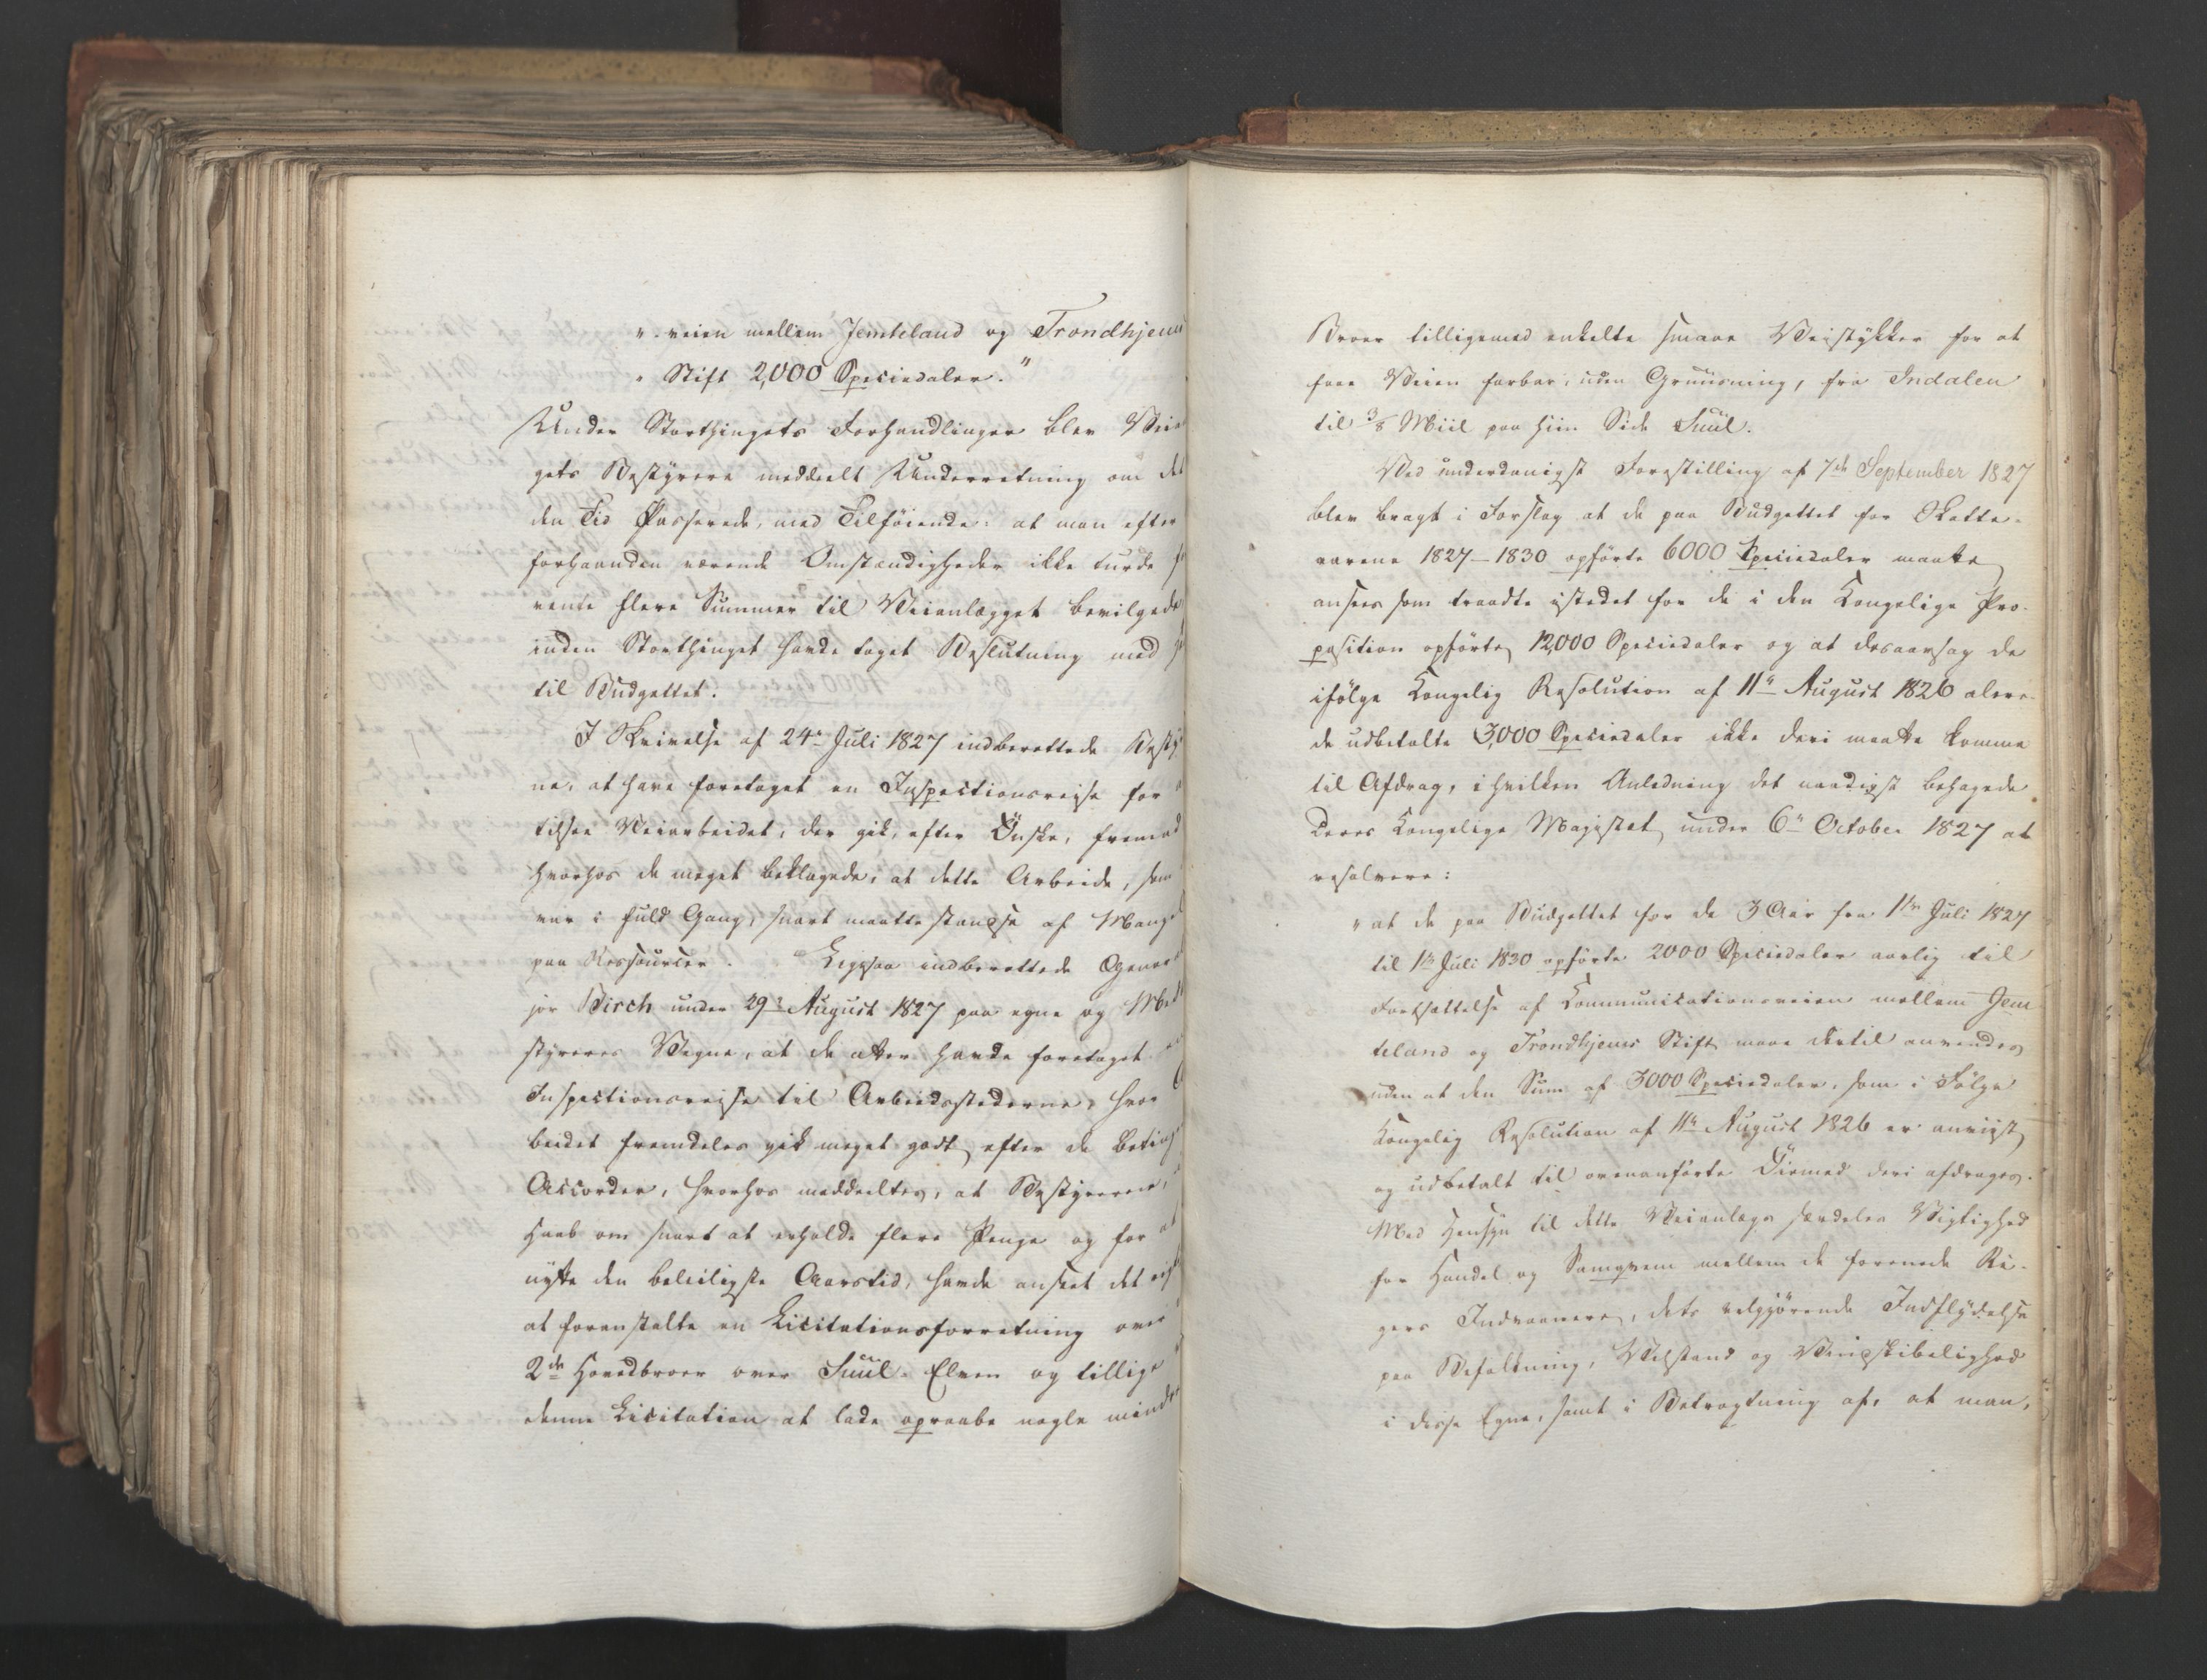 ". veien mellem Jemteland og Trondhjems
" Stift 2,000 Speciedaler."
Under Storthingets Forhandlinger blev Vei
gets Bestyrere meddeelt Underretning om det
den Tid Passerede, med Tilføiende: at man efter
forhaanden værende Omstændigheder ikke turde
vente flere Summer til Veianlægget bevilgede
inden Storthinget havde taget Beslutning med
til Budgettet.
I Skrivelse af 24de Juli 1827 indberettede Besty
ne, at have foretaget en Inspectionsreise for
tilsee Veiarbeidet, der gik, efter Ønske, fremad
hvorhos de meget beklagede, at dette Arbeide, som
var i fuld Gang, snart maatte standse af Mangel
paa Ressourcer. Ligesaa indberettede General
jor Birch under 29de August 1827 paa egne og Med
styreres Vegne, at de atter havde foretaget en
Inspectionsreise til Arbeidsstederne, hvor
beidet fremdeles gik meget godt efter de beting
Accorder, hvorhos meddeeltes, at Bestyrerne,
Haab om snart at erholde flere Penge og for at
nytte den beleiligste Aarstid, havde anseet det
at foranstalte en Licitationsforretning over
2de Hovedbroer over Suul-Elven og tillige
denne Licitation at lade opraabe nogle mindre
Broer tilligemed enkelte smaae Veistykker for at
faae Veien farbar, uden Gruusning, fra Indalen
til 3/8 Miil paa hiin Side Suul.
Ved underdanigst Forestilling af 7de September 1827
blev bragt i Forslag at de paa Budgettet for Skatte-
aarene 1827-1830 opførte 6000 Speciedaler maatte
ansees som traadte istedet for de i den Kongelige Pro-
position opførte 12,000 Speciedaler og at desaarsag de
ifølge Kongelig Resolution af 11te August 1826 allere-
de udbetalte 3,000 Speciedaler ikke deri maatte komme
til Afdrag, i hvilken Anledning det naadigst behagede
Deres Kongelige Majestet under 6te October 1827 at
resolvere:
"at de paa Budgettet for de 3 Aar fra 1ste Juli 1827
til 1ste Juli 1830 opførte 2000 Speciedaler aarlig til
Fortsættelse af Communicationsveien mellem Jem
teland og Trondhjems Stift maae dertil anvendes
uden at den Sum af 3000 Speciedaler, som i Følge
Kongelig Resolution af 11te August 1826 er anviist
og udbetalt til ovenanførte Øiemed deri afdrages.
Med Hensyn til dette Veianlægs særdeles Vigtighed
for Handel og Samqvem mellem de forenede Ri-
gers Indvaanere, dets velgjørende Indflydelse
paa Befolkning, Velstand og Vindskibelighed
i disse Egne, samt i Betragtning af, at man,